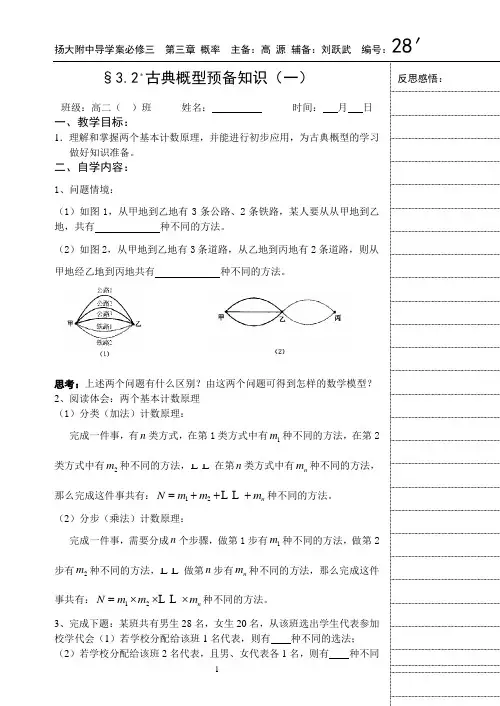 扬大附中导学案必修三 第三章 概率 主备：高 源 辅备：刘跃武 编号：28′
§3.2*古典概型预备知识（一）
反思感悟：
班级：高二（ ）班 姓名： 时间： 月 日
一、教学目标：
1．理解和掌握两个基本计数原理，并能进行初步应用，为古典概型的学习
做好知识准备。
二、自学内容：
1、问题情境：
（1）如图1，从甲地到乙地有3条公路、2条铁路，某人要从从甲地到乙
地，共有 种不同的方法。
（2）如图2，从甲地到乙地有3条道路，从乙地到丙地有2条道路，则从
甲地经乙地到丙地共有 种不同的方法。
公路1
公路2
公路3
甲 乙
铁路1
铁路2
（1）
甲 乙 丙
（2）
思考：上述两个问题有什么区别？由这两个问题可得到怎样的数学模型？
2、阅读体会：两个基本计数原理
（1）分类（加法）计数原理：
完成一件事，有n类方式，在第1类方式中有m₁种不同的方法，在第2
类方式中有m₂种不同的方法，L L 在第n类方式中有mₙ种不同的方法，
那么完成这件事共有：N = m₁ + m₂ + L L + mₙ种不同的方法。
（2）分步（乘法）计数原理：
完成一件事，需要分成n个步骤，做第1步有m₁种不同的方法，做第2
步有m₂种不同的方法，L L 做第n步有mₙ种不同的方法，那么完成这件
事共有：N = m₁ × m₂ × L L × mₙ种不同的方法。
3、完成下题：某班共有男生28名，女生20名，从该班选出学生代表参加
校学代会（1）若学校分配给该班1名代表，则有 种不同的选法；
（2）若学校分配给该班2名代表，且男、女代表各1名，则有 种不同
1